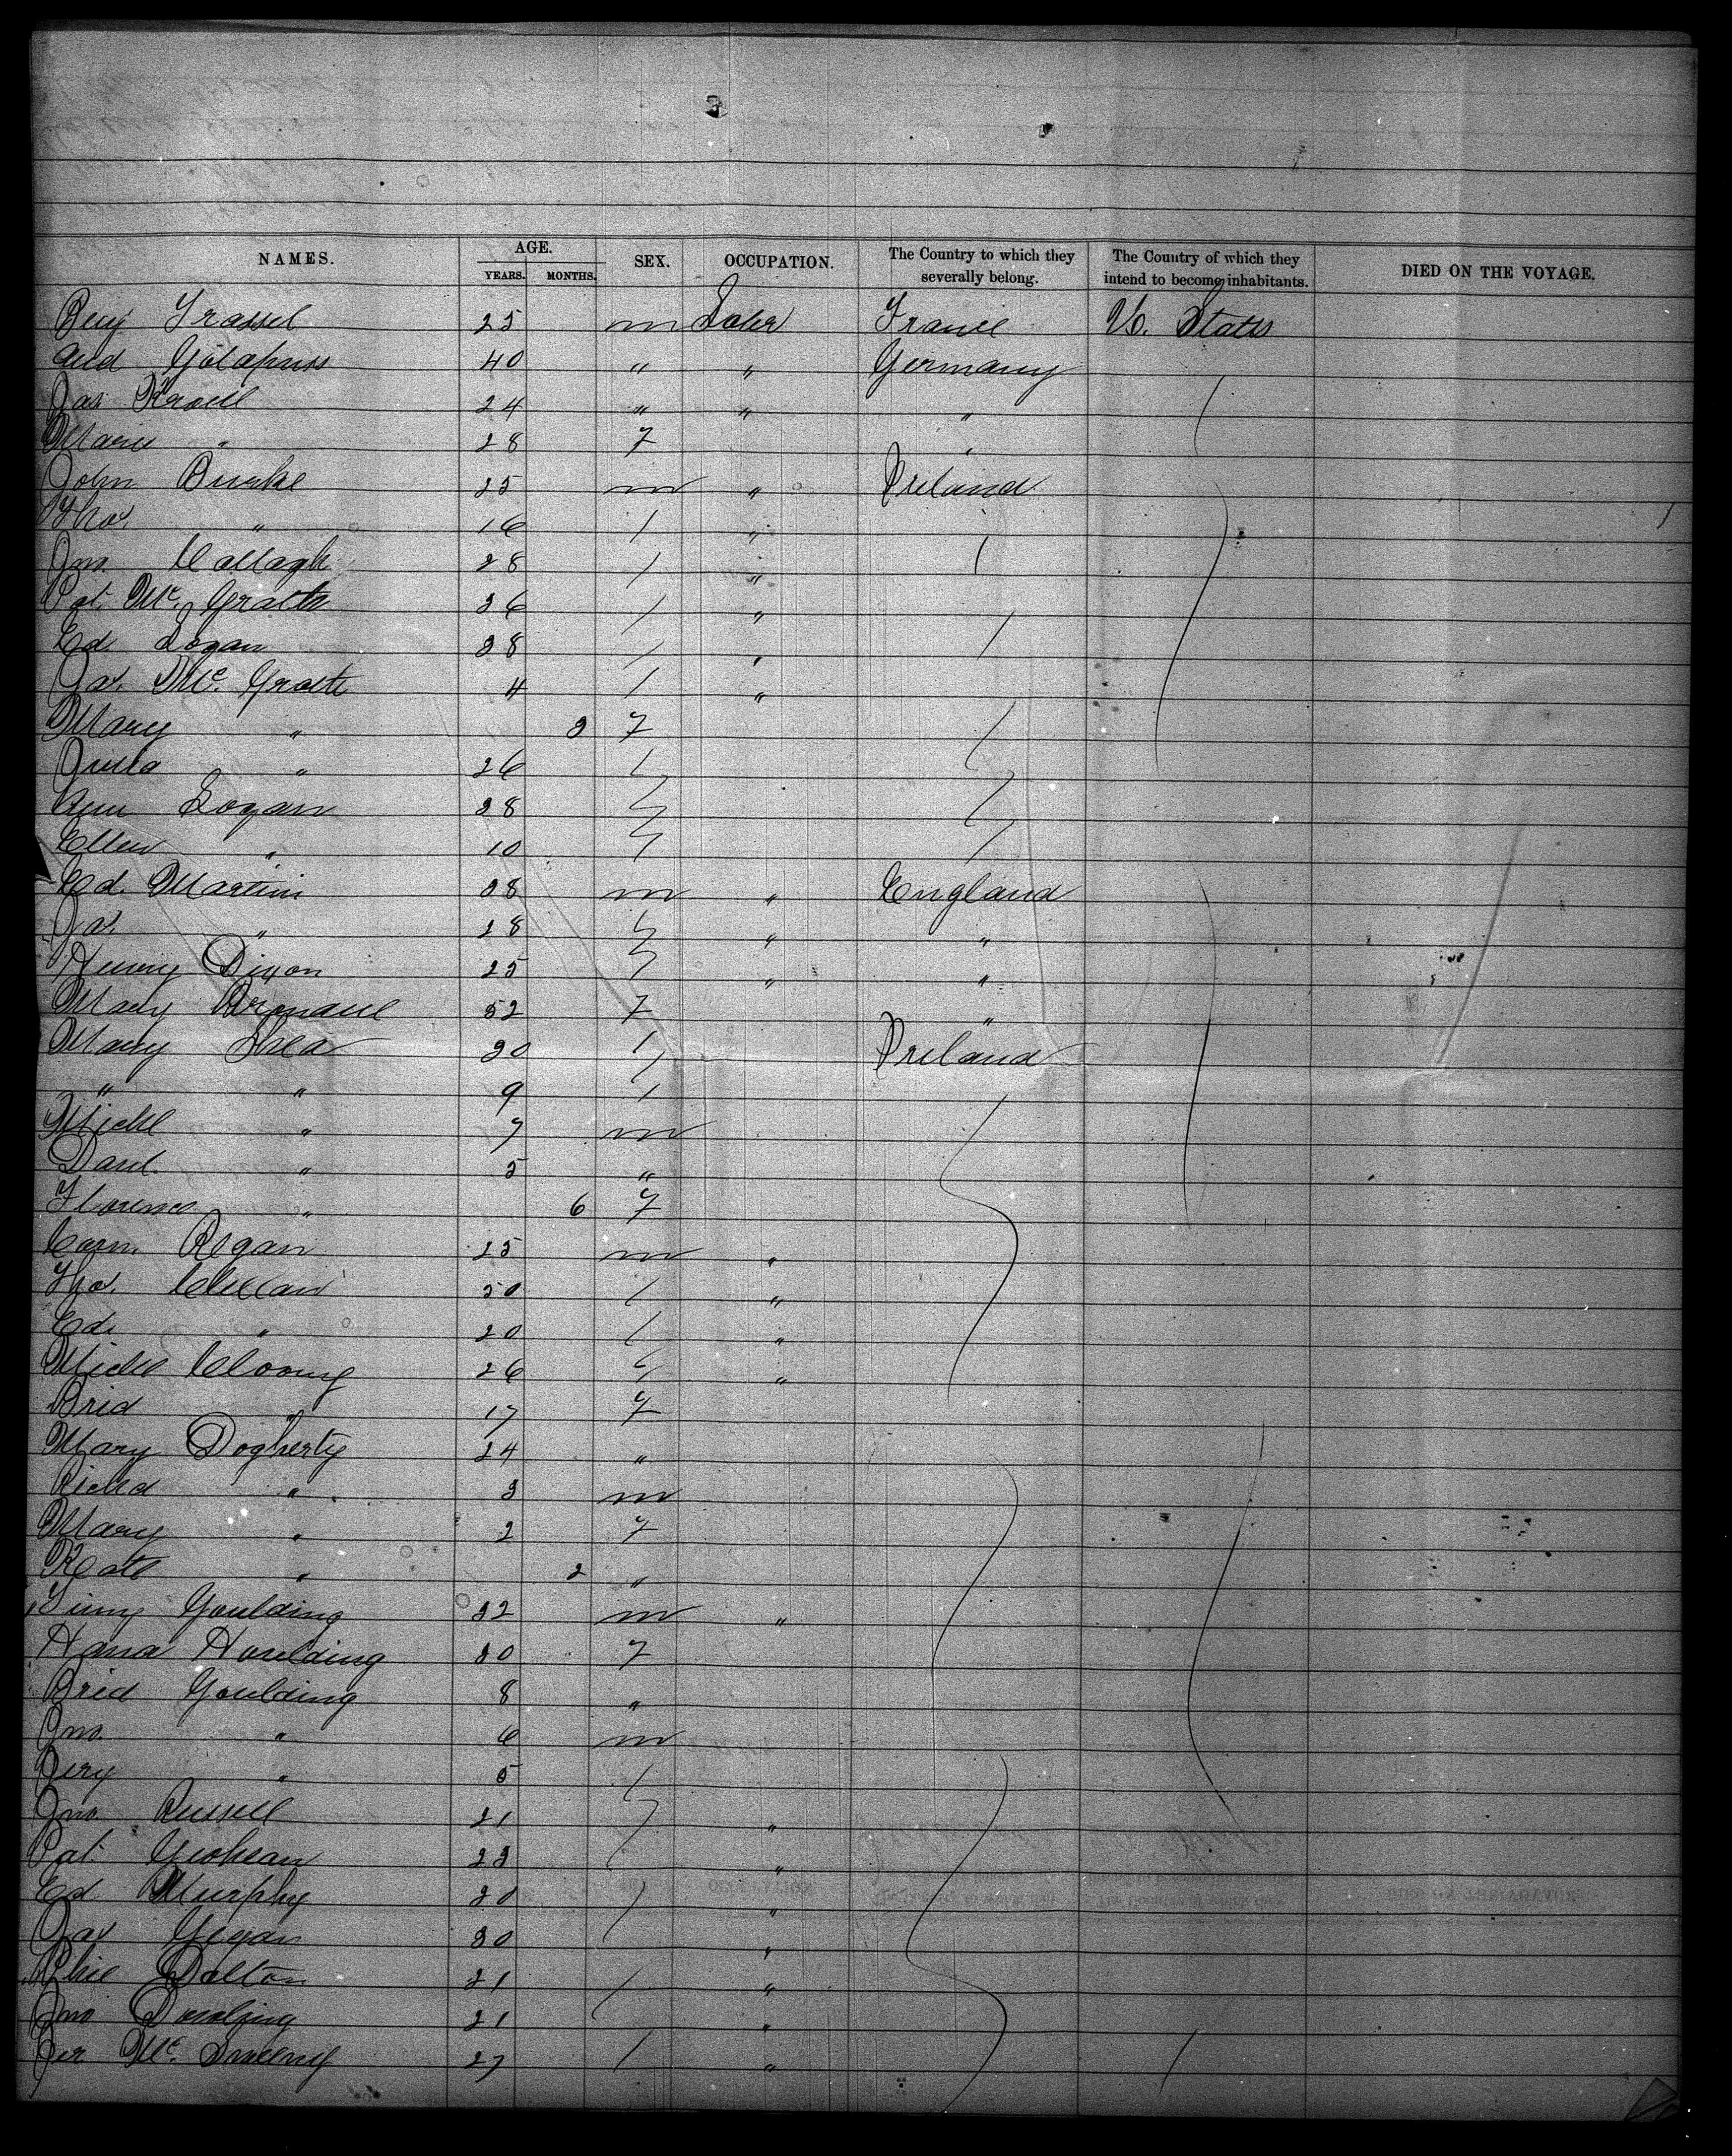 NAMES. AGE. YEARS. MONTHS. SEX. OCCUPATION. The Country to which they severally belong. The Country of which they intend to become inhabitants. DIED ON THE VOYAGE.
25 m France U. States
40 " " Germany
Jas. 24 " " "
Marie " 28 F "
John Burke 25 m " Ireland
Thos. " 16 "
Jno. Callagh 28 "
Pat. Mc. Grath 26 "
Ed. Logan 28 "
Jas. Mc. Grath 4 "
Mary " F
" 26
Ann Logan 28
Ellen " 10
Ed. Martin 28 m " England
Jas. " 18 " "
Henry Dixon 25 " "
Mary 52 F "
Mary Shea 30 Ireland
" " 9
Michl " 7 m
Danl. " 5 "
Florence " 6 F
Corn. Regan 25 m "
Thos. 50 "
Ed. " 20 "
Michl 26 "
Brid " 17 F
Mary Dogherty 24 "
Richd " 3 m
Mary " 2 F
Kate " 2 "
Goulding 32 m "
Hana Houlding 30 F
Brid Goulding 8 "
Jno. " 6 m
Jery " 5
Jno. Russell 21 "
Pat. 23 "
Ed Murphy 20 "
Jas 30 "
Dalton 21 "
Jno 21 "
Jer Mc. Sweeny 27 "